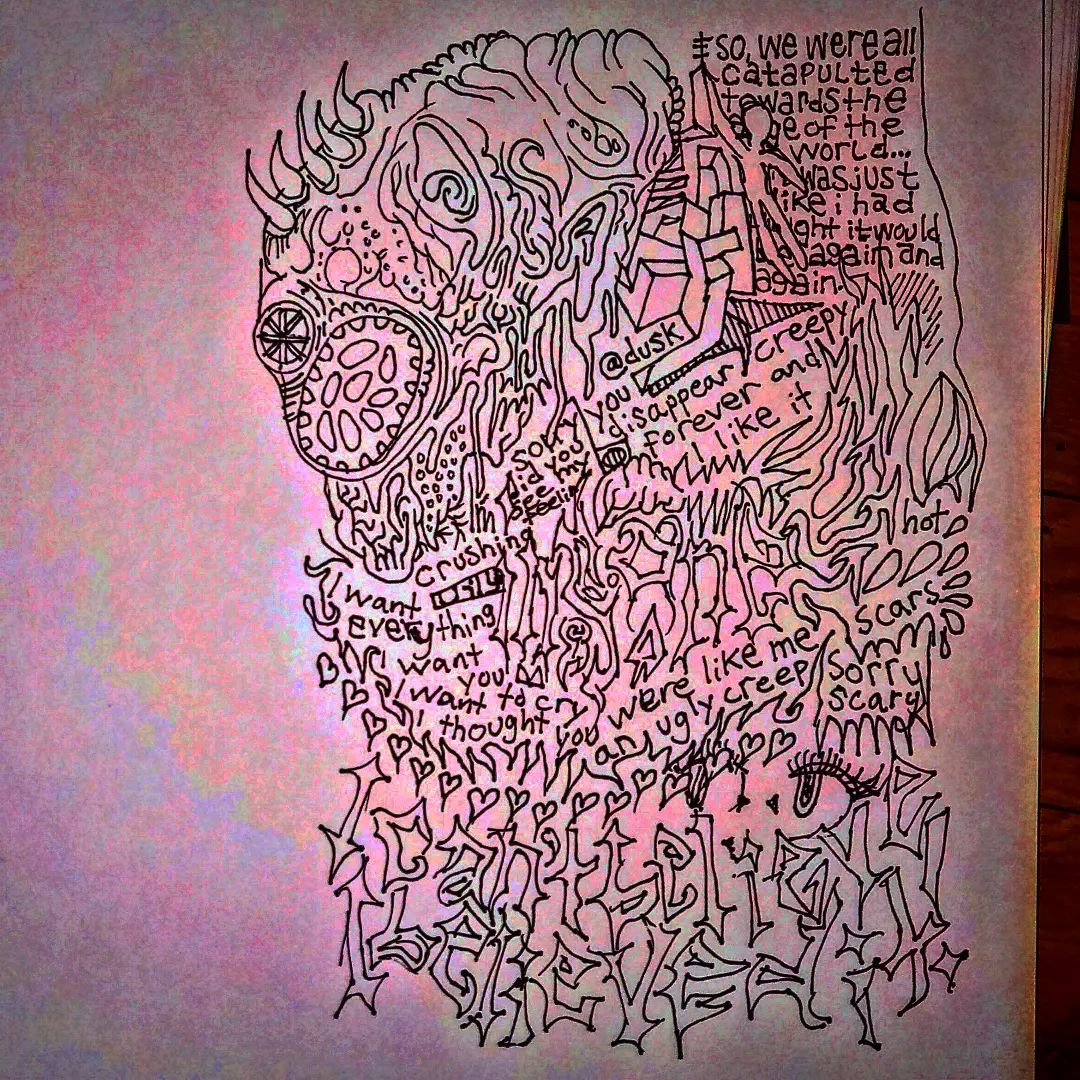 so, we were all
catapulted
towards the
e of the
world...
was just
ike i had
ght it would
again and
again.
@dusk
you
disappear
creepy
forever and
i like it
sorry
did you
see my
feelin
crushing
i want
everything
i want
you!
i want to cry
i thought you
were like me
an ugly creep
hot
scars
sorry
scary
I can't believe
I believed